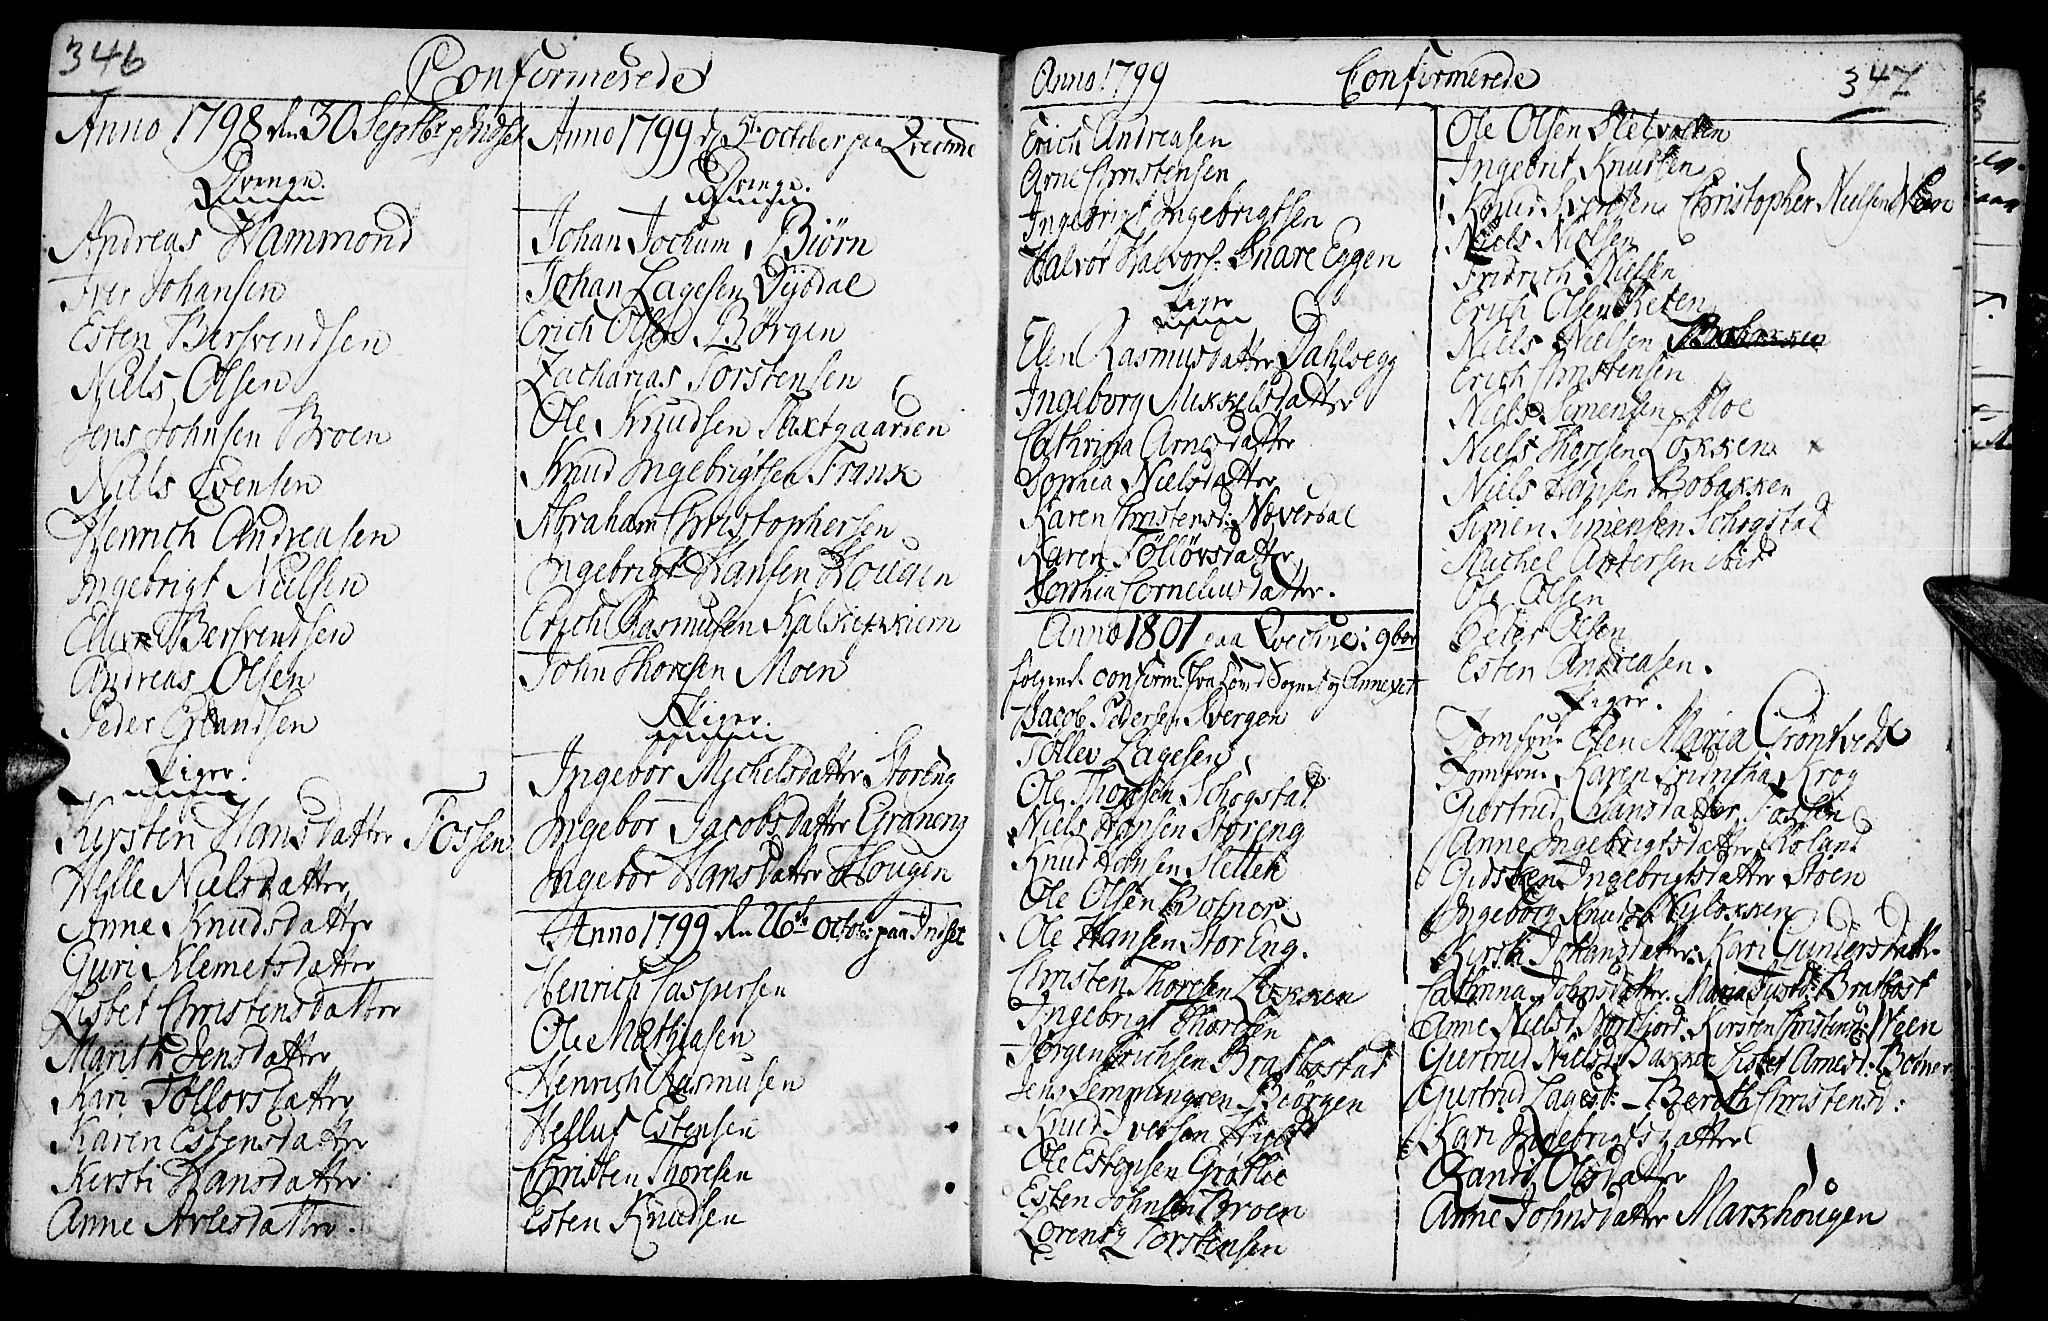 346
Confirmerede
Anno 1798 den 30 Septbr p Indset
Drenge.
Andreas Hammond
Iver Johansen
Esten Bersvendsen
Niels Olsen
Jens Johnsen Broen
Niels Evensen
Henrich Andreasen
Ingebrigt Nielsen
Bersvendsen
Andreas Olsen
Peder Erlandsen
Piger.
Kirsten Hansdatter Fossen
Helle Nielsdatter
Anne Knudsdatter
Guri Klemetsdatter
Lisbet Christensdatter
Marith Jensdatter
Kari Töllovsdatter
Karen Estensdatter
Kersti Hansdatter
Anne Arnesdatter.
Anno 1799 d 5te october paa Qvecine
Drenge.
Johan Jochum Biörn
Johan Lagesen Dÿbdal
Erich Olsen Börgen
Zacharias Torstensen
Ole Knudsen Taxtgaarden
Knud Ingebrigtsen Frank
Abraham Christophersen
Ingebrigt Hansen Hougen
Erich Rasmusen
John Thoresen Moen
Piger.
Ingebor Michelsdatter Storeng
Ingebor Jacobsdatter Graneng
Ingebor Hansdatter Hougen
Anno 1799 den 26te octob: paa Indset
Henrich Caspersen
Ole Mathiasen
Henrich Rasmusen
Hellus Estensen
Christen Thoresen
Esten Knudsen
Anno 1799
Confirmerede
347
Erich Andreasen
Arne Christensen
Ingebrigt Ingebrigtsen
Halvor Halvors: Snare Eggen
Piger
Elen Rasmusdatter Dahlsegg
Ingeborg Mikkelsdatter
Cathrina Arnesdatter
Sophia Nielsdatter
Karen Christensd: Næverdal
Karen Töllövsdatter
Sophia Corneliusdatter.
Anno 1801 paa Qvecine i 9ber
følgende confirm: fra Hoved Sognet og Annexet
Jacob Pedersen
Töllev Lagesen
Ole Thoresen Schogstad
Niels Hansen Storeng
Knud Hansen Sletten
Ole Olsen
Ole Hansen StorEng.
Christen Thoresen Løkken
Ingebrigt Thoresen
Jørgen Erichsen Bratbostad
Jens Lemmingven Biörgen
Knud Iversen
Ole Estensen Grøtlie
Esten Johnsen Broen
Lorentz Torstensen
Ole Olsen Sletbakken
Ingebrit Knutsen
Knud Svensen Christopher Nielsen Ween
Niels Nielsen
Fridrich Nielsen
Erich Olsen Reten
Niels Nielsen Bobakken
Erich Christensen
Niels Simensen Moe
Niels Thoresen Løkken
Niels Hansen Bobakken
Simen Simensen Schogstad
Michel Andersen
Ole Olsen
Peder Olsen
Esten Andreasen.
Piger.
Jomfrue Elen Maria Gröntvedt
Jomfrue Karen Krog
Giertrud Hansdatter Fossen
Anne Ingebrigtsdatter
Gidsken Ingebrigtsdatter Støen
Ingeborg Knudsd: Nyløkken
Kirsti Johansdatter. Kari Gundersdatter
Cathrina Johnsdatter. Maria Bratbost
Anne Nielsd: Nordfjord. Kirsten Christensd: Ween
Giertrud Nielsd: Bakke Lisbet Arnesd: Bodner
Giertrud Lagesd: Berith Christensd:
Kari Ingebrigtsdatter
Randi Olsdatter
Anne Johnsdatter Markhougen